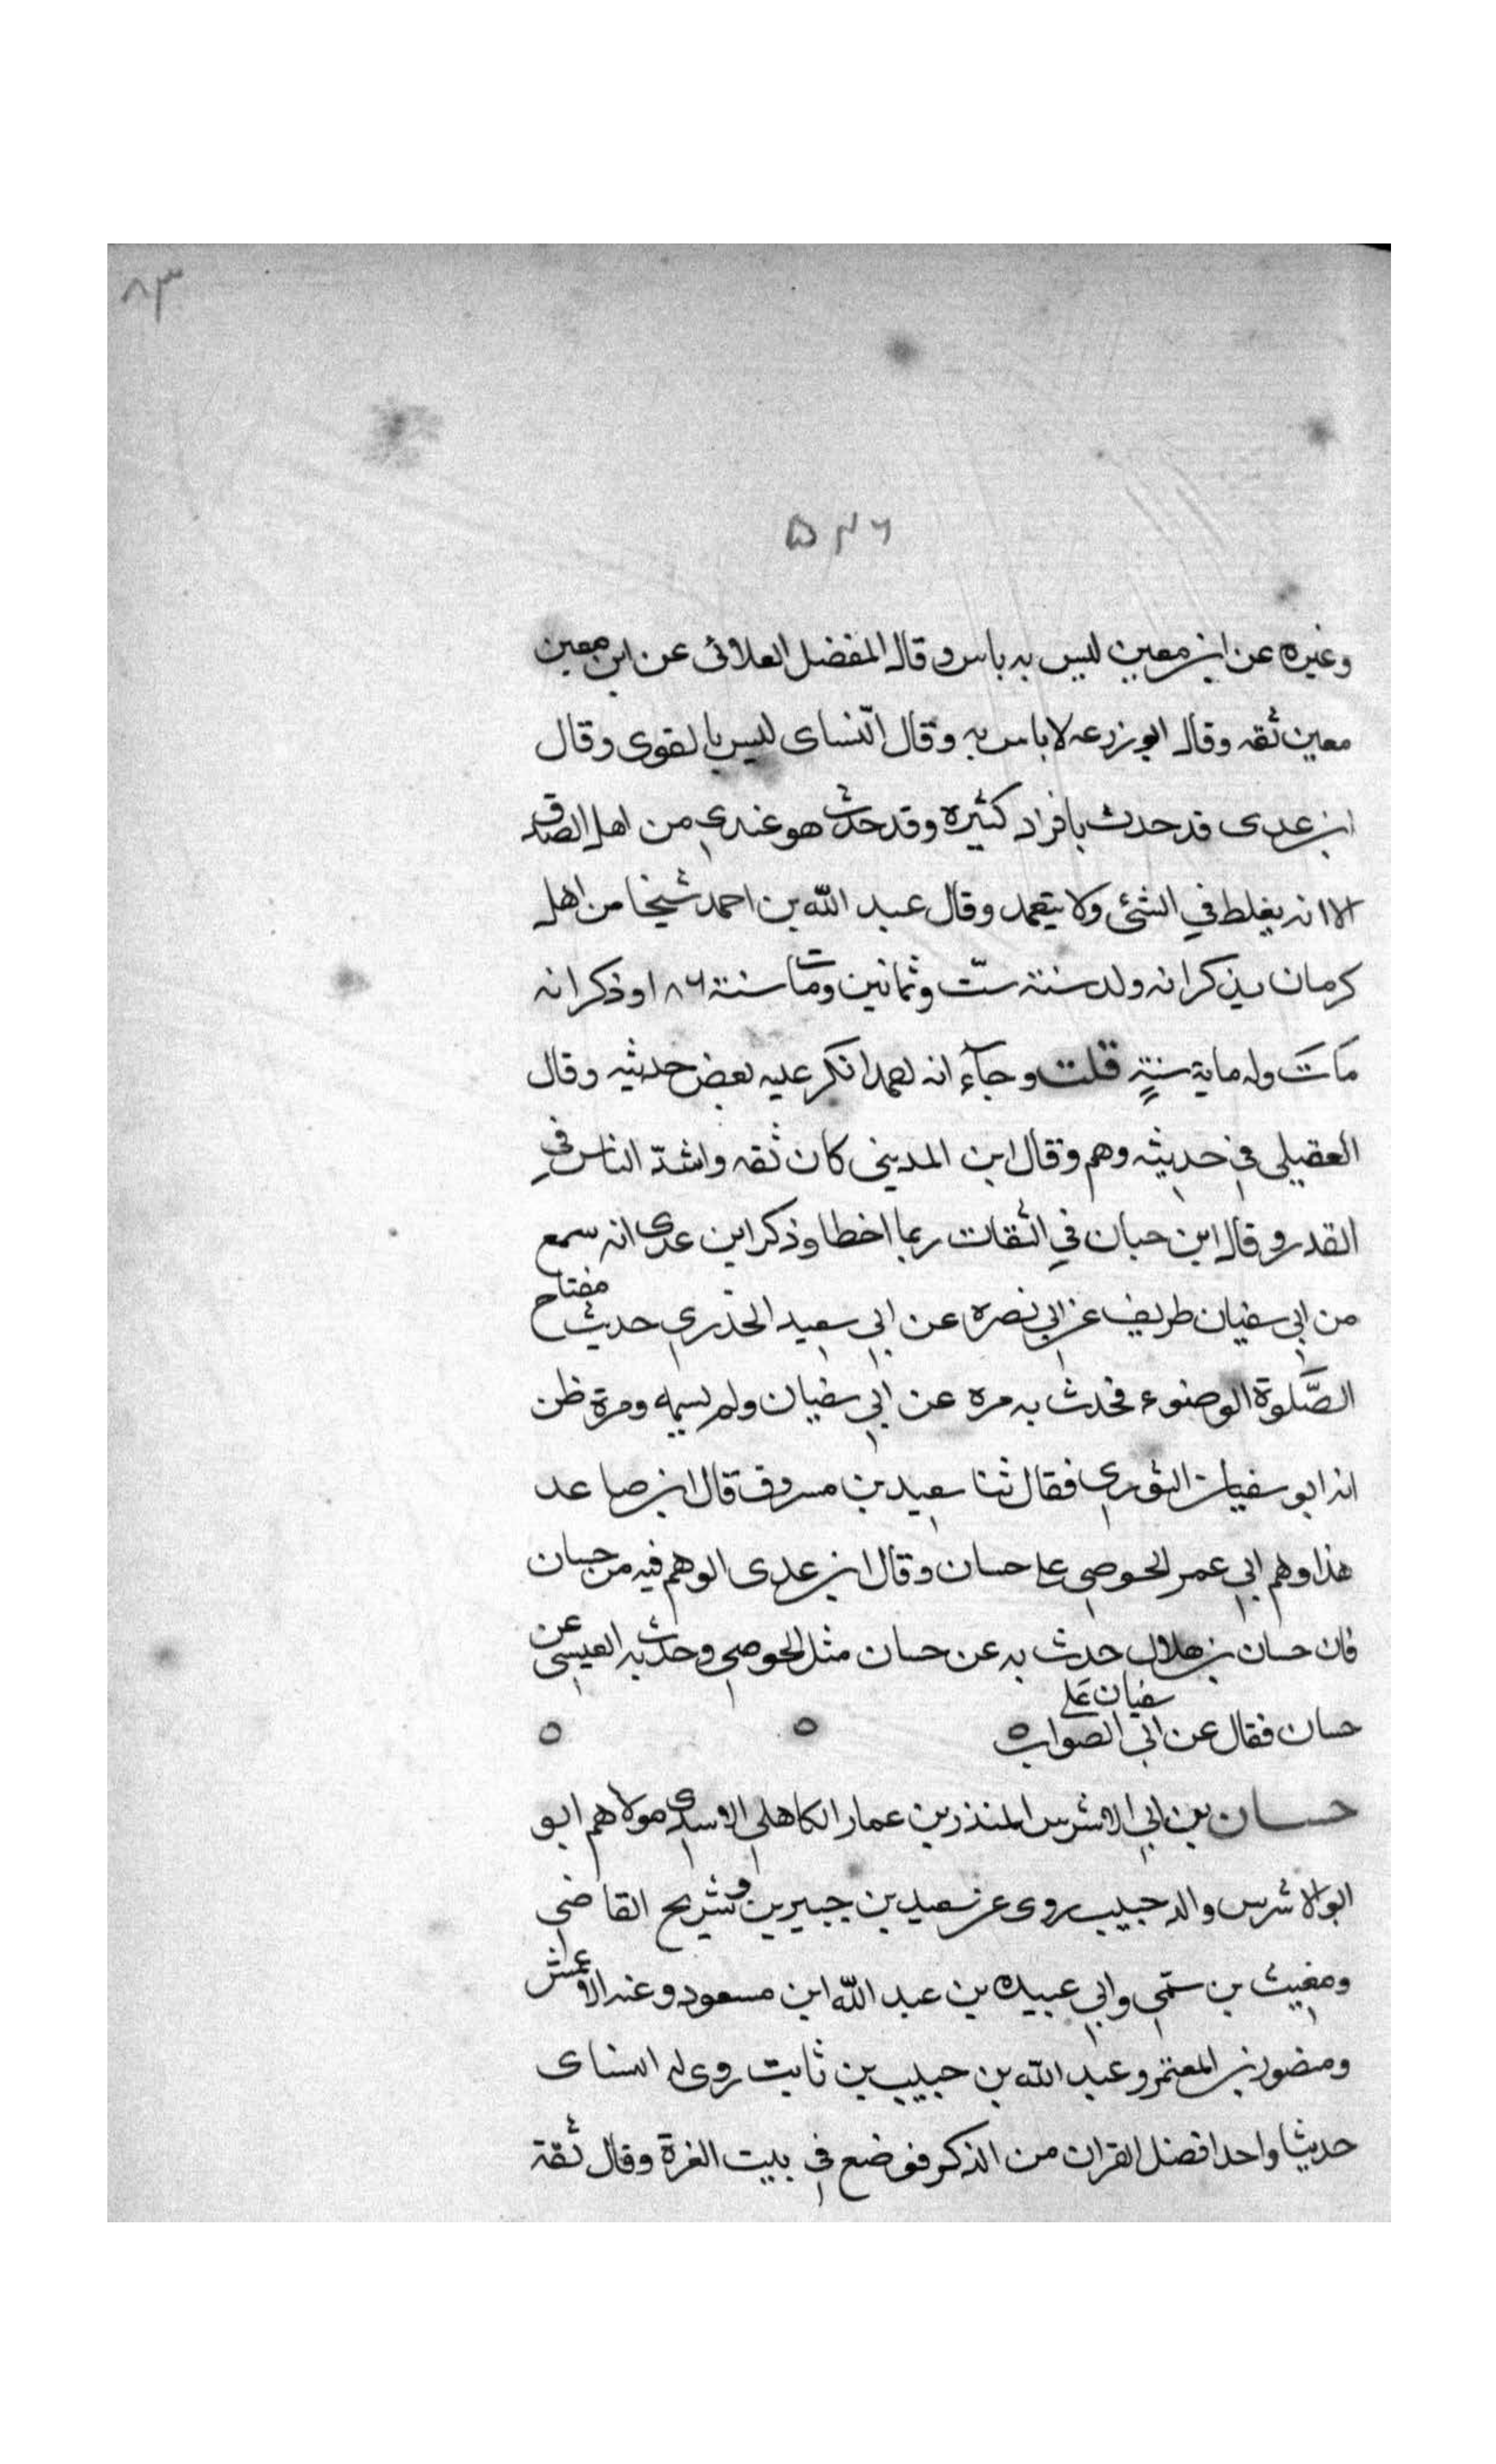 ٨٣
٥٤٦
وغيره عن ابن معين ليس به باس وقال المفضل العلائى عن ابن معين
معين ثقه وقال ابو زرعه لا باس به وقال النساى ليس بالقوى وقال
ابن عدى قد حدث بافراد كثيره وقد حدث هو عندي من اهل الصدق
الا انه يغلط في الشئ ولا يتعمد وقال عبد الله بن احمد شيخا من اهل
كرمان يذكر انه ولد سنة ستّ وثمانين ومات سنة ١٨٦ وذكر انه
مات وله ماية سنةٍ قلت وجآء انه انكر عليه بعض حديثه وقال
العقيلى في حديثه وهم وقال ابن المدينى كان ثقه واشدّ الناس في
القدر وقال ابن حبان في الثقات ربما اخطا وذكر ابن عدى انه سمع
من ابي سفيان طريف عن ابي نضره عن ابي سعيد الخذري حديث مفتاح
الصَّلوة الوضوء فحدث به مره عن ابي سفيان ولم يسمه ومرة ظن
انه ابو سفيان الثوري فقال ثنا سعيد بن مسروق قال ابن صاعد
هذا وهم ابي عمر الحوضي على حسان وقال ابن عدى الوهم فيه من حسان
فان حسان بن هلال حدث به عن حسان مثل الحوضي وحدث به العيسى عن
حسان فقال عن ابي سفيان على الصواب ٥ ٥ ٥
حسان بن ابي الاشرس المنذر بن عمار الكاهلي الاسدي مولاهم ابو
ابو الاشرس والد حبيب روى عن سعيد بن جبير بن وشريح القاضي
ومغيث بن سمّي وابي عبيده بن عبد الله ابن مسعود وعنه الاعمش
ومنصور بن المعتمر وعبد الله بن حبيب بن ثابت روى له النساى
حديثا واحدا فضل القران من الذكر فوضع في بيت الغرة وقال ثقة